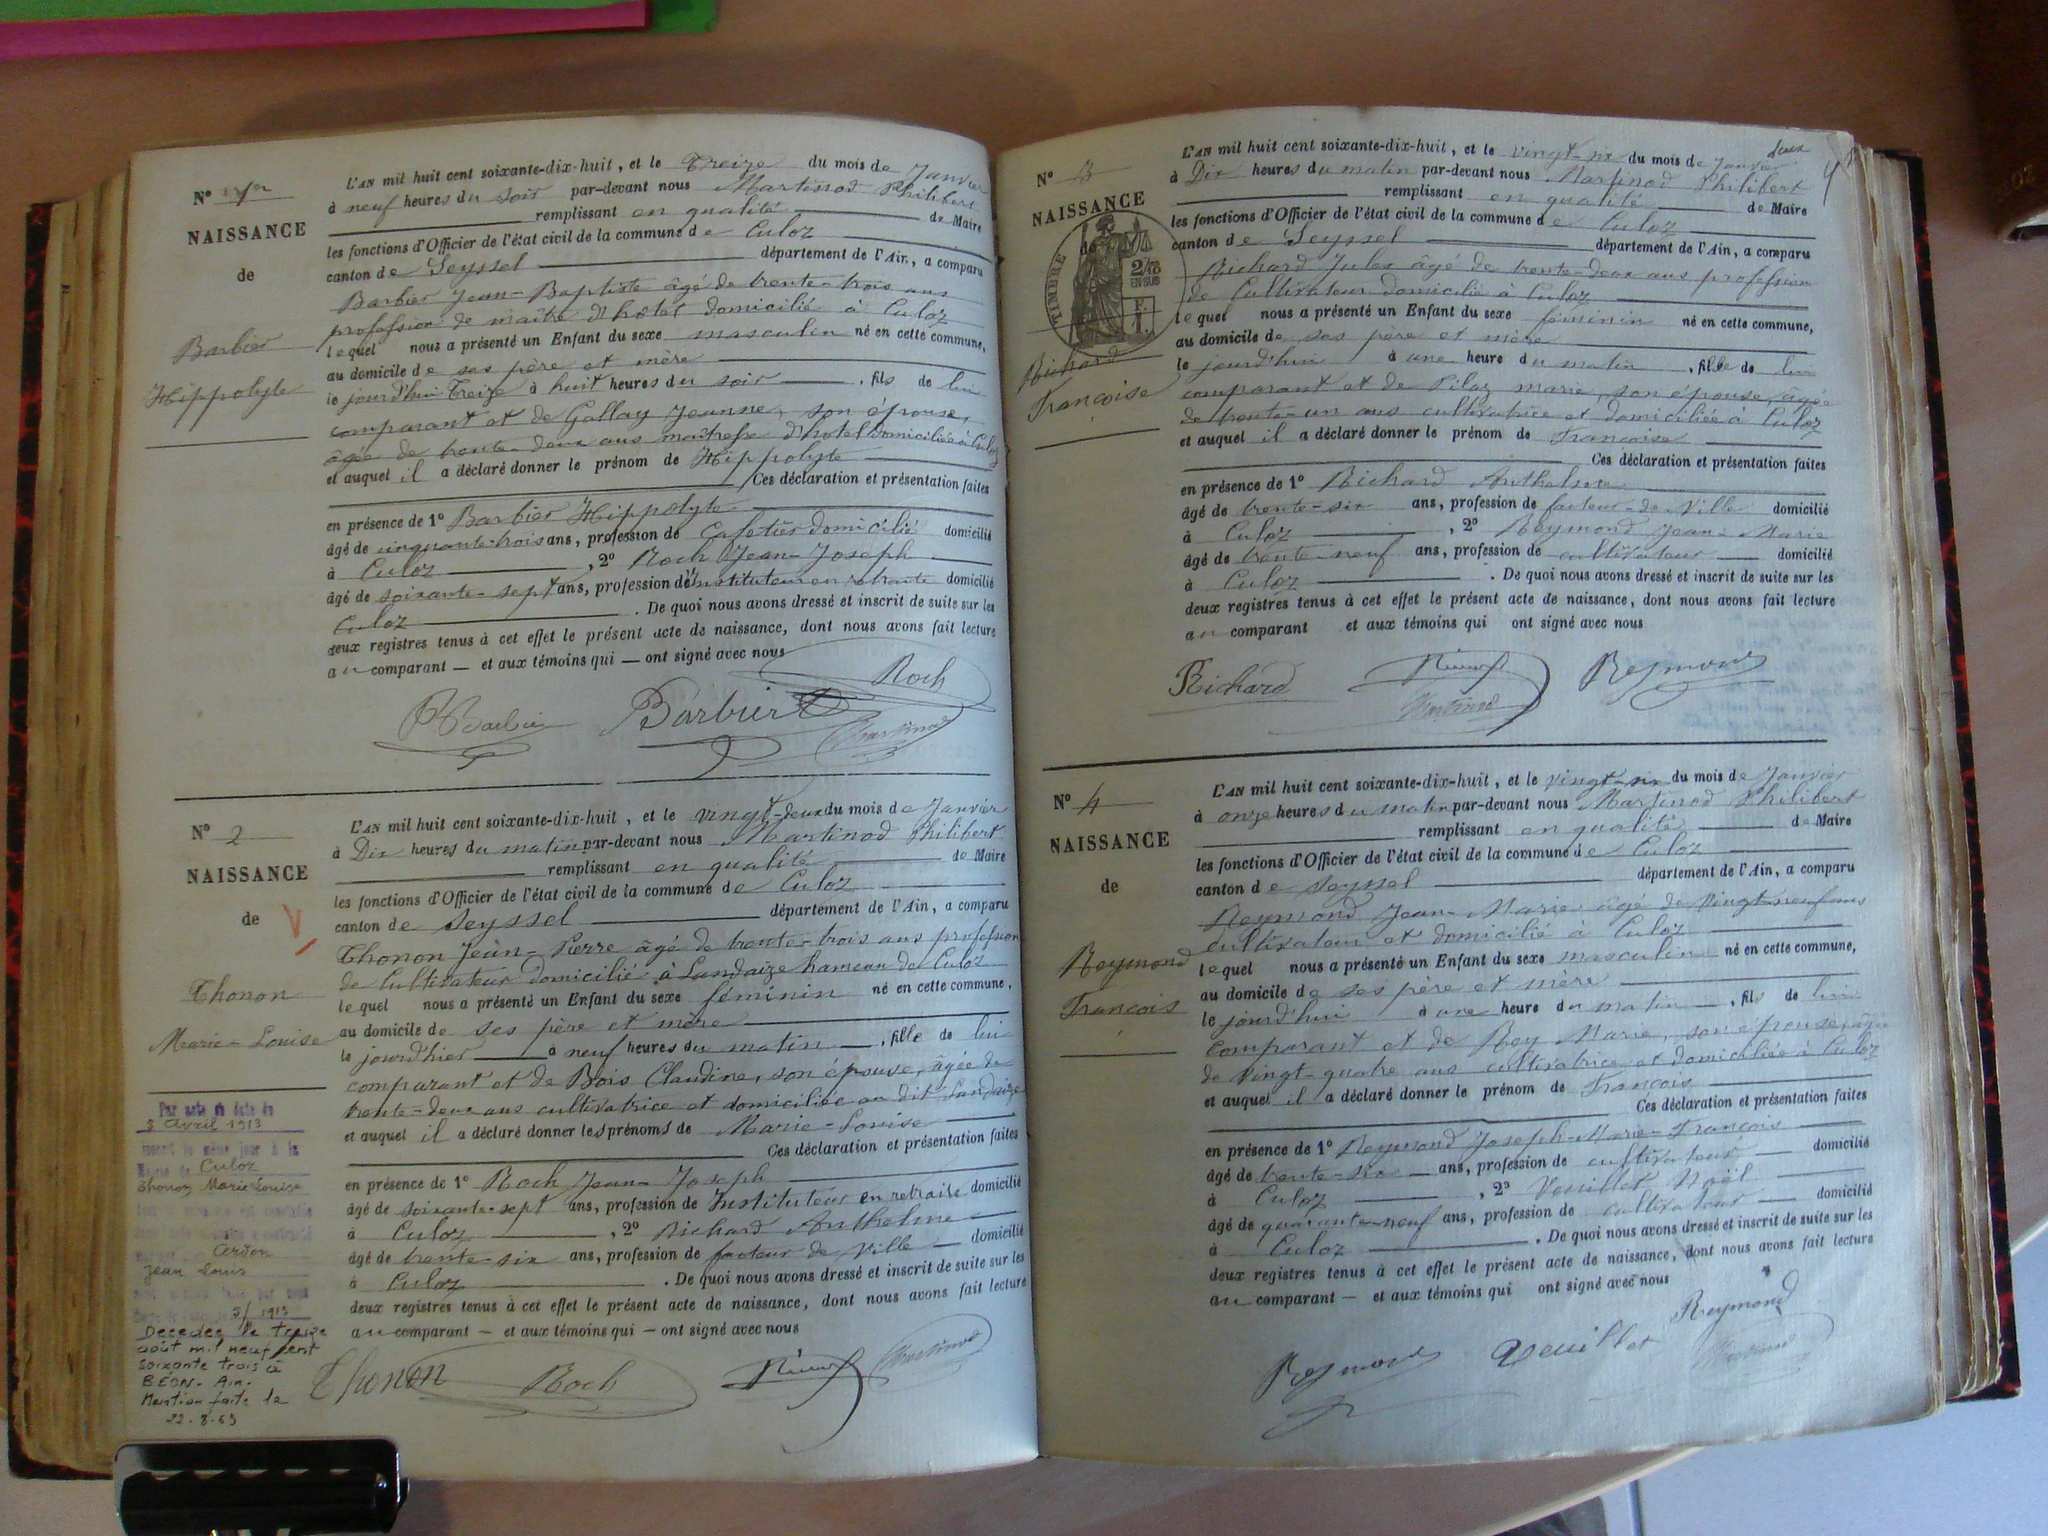 N° 1er
NAISSANCE
de
Barbier
Hippolyte
L'AN mil huit cent soixante-dix-huit, et le Treize du mois de Janvier
à neuf heures du soir par-devant nous Martinod Philibert
remplissant en qualité de Maire
les fonctions d'Officier de l'état civil de la commune de Culoz
canton de Seyssel département de l'Ain, a comparu
Barbier Jean-Baptiste âgé de trente-trois ans
profession de maître d'hôtel domicilié à Culoz
lequel nous a présenté un Enfant du sexe masculin né en cette commune,
au domicile de ses père et mère
le jourd'hui Treize à huit heures du soir, fils de lui
comparant et de Gallay Jeanne, son épouse,
âgée de trente-deux ans maîtresse d'hôtel domiciliée à Culoz
et auquel il a déclaré donner le prénom de Hippolyte
Ces déclaration et présentation faites
en présence de 1° Barbier Hippolyte
âgé de cinquante-trois ans, profession de Cafetier domicilié domicilié
à Culoz, 2° Roch Jean-Joseph
âgé de soixante-sept ans, profession d'instituteur en retraite domicilié
Culoz. De quoi nous avons dressé et inscrit de suite sur les
deux registres tenus à cet effet le présent acte de naissance, dont nous avons fait lecture
au comparant — et aux témoins qui — ont signé avec nous
Roch
Barbier Barbier
Martinod
N° 2
NAISSANCE
de
Thonon
Marie-Louise
L'AN mil huit cent soixante-dix-huit, et le vingt-deux du mois de Janvier
à Dix heures du matin par-devant nous Martinod Philibert
remplissant en qualité de Maire
les fonctions d'Officier de l'état civil de la commune de Culoz
canton de Seyssel département de l'Ain, a comparu
Thonon Jean-Pierre âgé de trente-trois ans profession
de Cultivateur domicilié à Landaize hameau de Culoz
lequel nous a présenté un Enfant du sexe féminin né en cette commune,
au domicile de ses père et mère
le jourd'hier à neuf heures du matin, fille de lui
comparant et de Bois Claudine, son épouse, âgée de
trente-deux ans cultivatrice et domiciliée au dit Landaize
et auquel il a déclaré donner les prénoms de Marie-Louise
Ces déclaration et présentation faites
en présence de 1° Roch Jean-Joseph
âgé de soixante-sept ans, profession de Instituteur en retraite domicilié
à Culoz, 2° Richard Anthelme
âgé de trente-six ans, profession de facteur de Ville domicilié
à Culoz. De quoi nous avons dressé et inscrit de suite sur les
deux registres tenus à cet effet le présent acte de naissance, dont nous avons fait lecture
au comparant — et aux témoins qui — ont signé avec nous
Thonon Roch Martinod
Par acte en date du
5 Avril 1913
Culoz
Thonon Marie Louise
Ardon
Jean Louis
5/ 1913
Décédée le treize
août mil neuf cent
soixante trois à
BÉON. Ain.
Mention faite le
22.8.63
N° 3
NAISSANCE
de
TIMBRE
2/10
EN SUS
Richard
Françoise
L'AN mil huit cent soixante-dix-huit, et le vingt-deux du mois de Janvier
à Dix heures du matin par-devant nous Martinod Philibert
remplissant en qualité de Maire
les fonctions d'Officier de l'état civil de la commune de Culoz
canton de Seyssel département de l'Ain, a comparu
Richard Jules âgé de trente-deux ans profession
de Cultivateur domicilié à Culoz
lequel nous a présenté un Enfant du sexe féminin né en cette commune,
au domicile de ses père et mère
le jourd'hui à une heure du matin, fille de lui
comparant et de Piloz marie, son épouse, âgée
de trente-un ans cultivatrice et domiciliée à Culoz
et auquel il a déclaré donner le prénom de Françoise
Ces déclaration et présentation faites
en présence de 1° Richard Anthelme
âgé de trente-six ans, profession de facteur-de-Ville domicilié
à Culoz, 2° Reymond Jean-Marie
âgé de trente-neuf ans, profession de cultivateur domicilié
à Culoz. De quoi nous avons dressé et inscrit de suite sur les
deux registres tenus à cet effet le présent acte de naissance, dont nous avons fait lecture
au comparant et aux témoins qui ont signé avec nous
Richard Reymond
Martinod
4
N° 4
NAISSANCE
de
Reymond
François
L'AN mil huit cent soixante-dix-huit, et le vingt-six du mois de Janvier
à onze heures du matin par-devant nous Martinod Philibert
remplissant en qualité de Maire
les fonctions d'Officier de l'état civil de la commune de Culoz
canton de Seyssel département de l'Ain, a comparu
Reymond Jean-Marie âgé de Vingt-neuf ans
cultivateur et domicilié à Culoz
lequel nous a présenté un Enfant du sexe masculin né en cette commune,
au domicile de ses père et mère
le jourd'hui à une heure du matin, fils de lui
comparant et de Rey Marie, son épouse, âgée
de vingt-quatre ans cultivatrice et domiciliée à Culoz
et auquel il a déclaré donner le prénom de François
Ces déclaration et présentation faites
en présence de 1° Reymond Joseph-Marie-François
âgé de trente-six ans, profession de cultivateur domicilié
à Culoz, 2° Veuillet Noël
âgé de quarante-neuf ans, profession de cultivateur domicilié
à Culoz. De quoi nous avons dressé et inscrit de suite sur les
deux registres tenus à cet effet le présent acte de naissance, dont nous avons fait lecture
au comparant — et aux témoins qui ont signé avec nous
Reymond
Reymond Veuillet Martinod